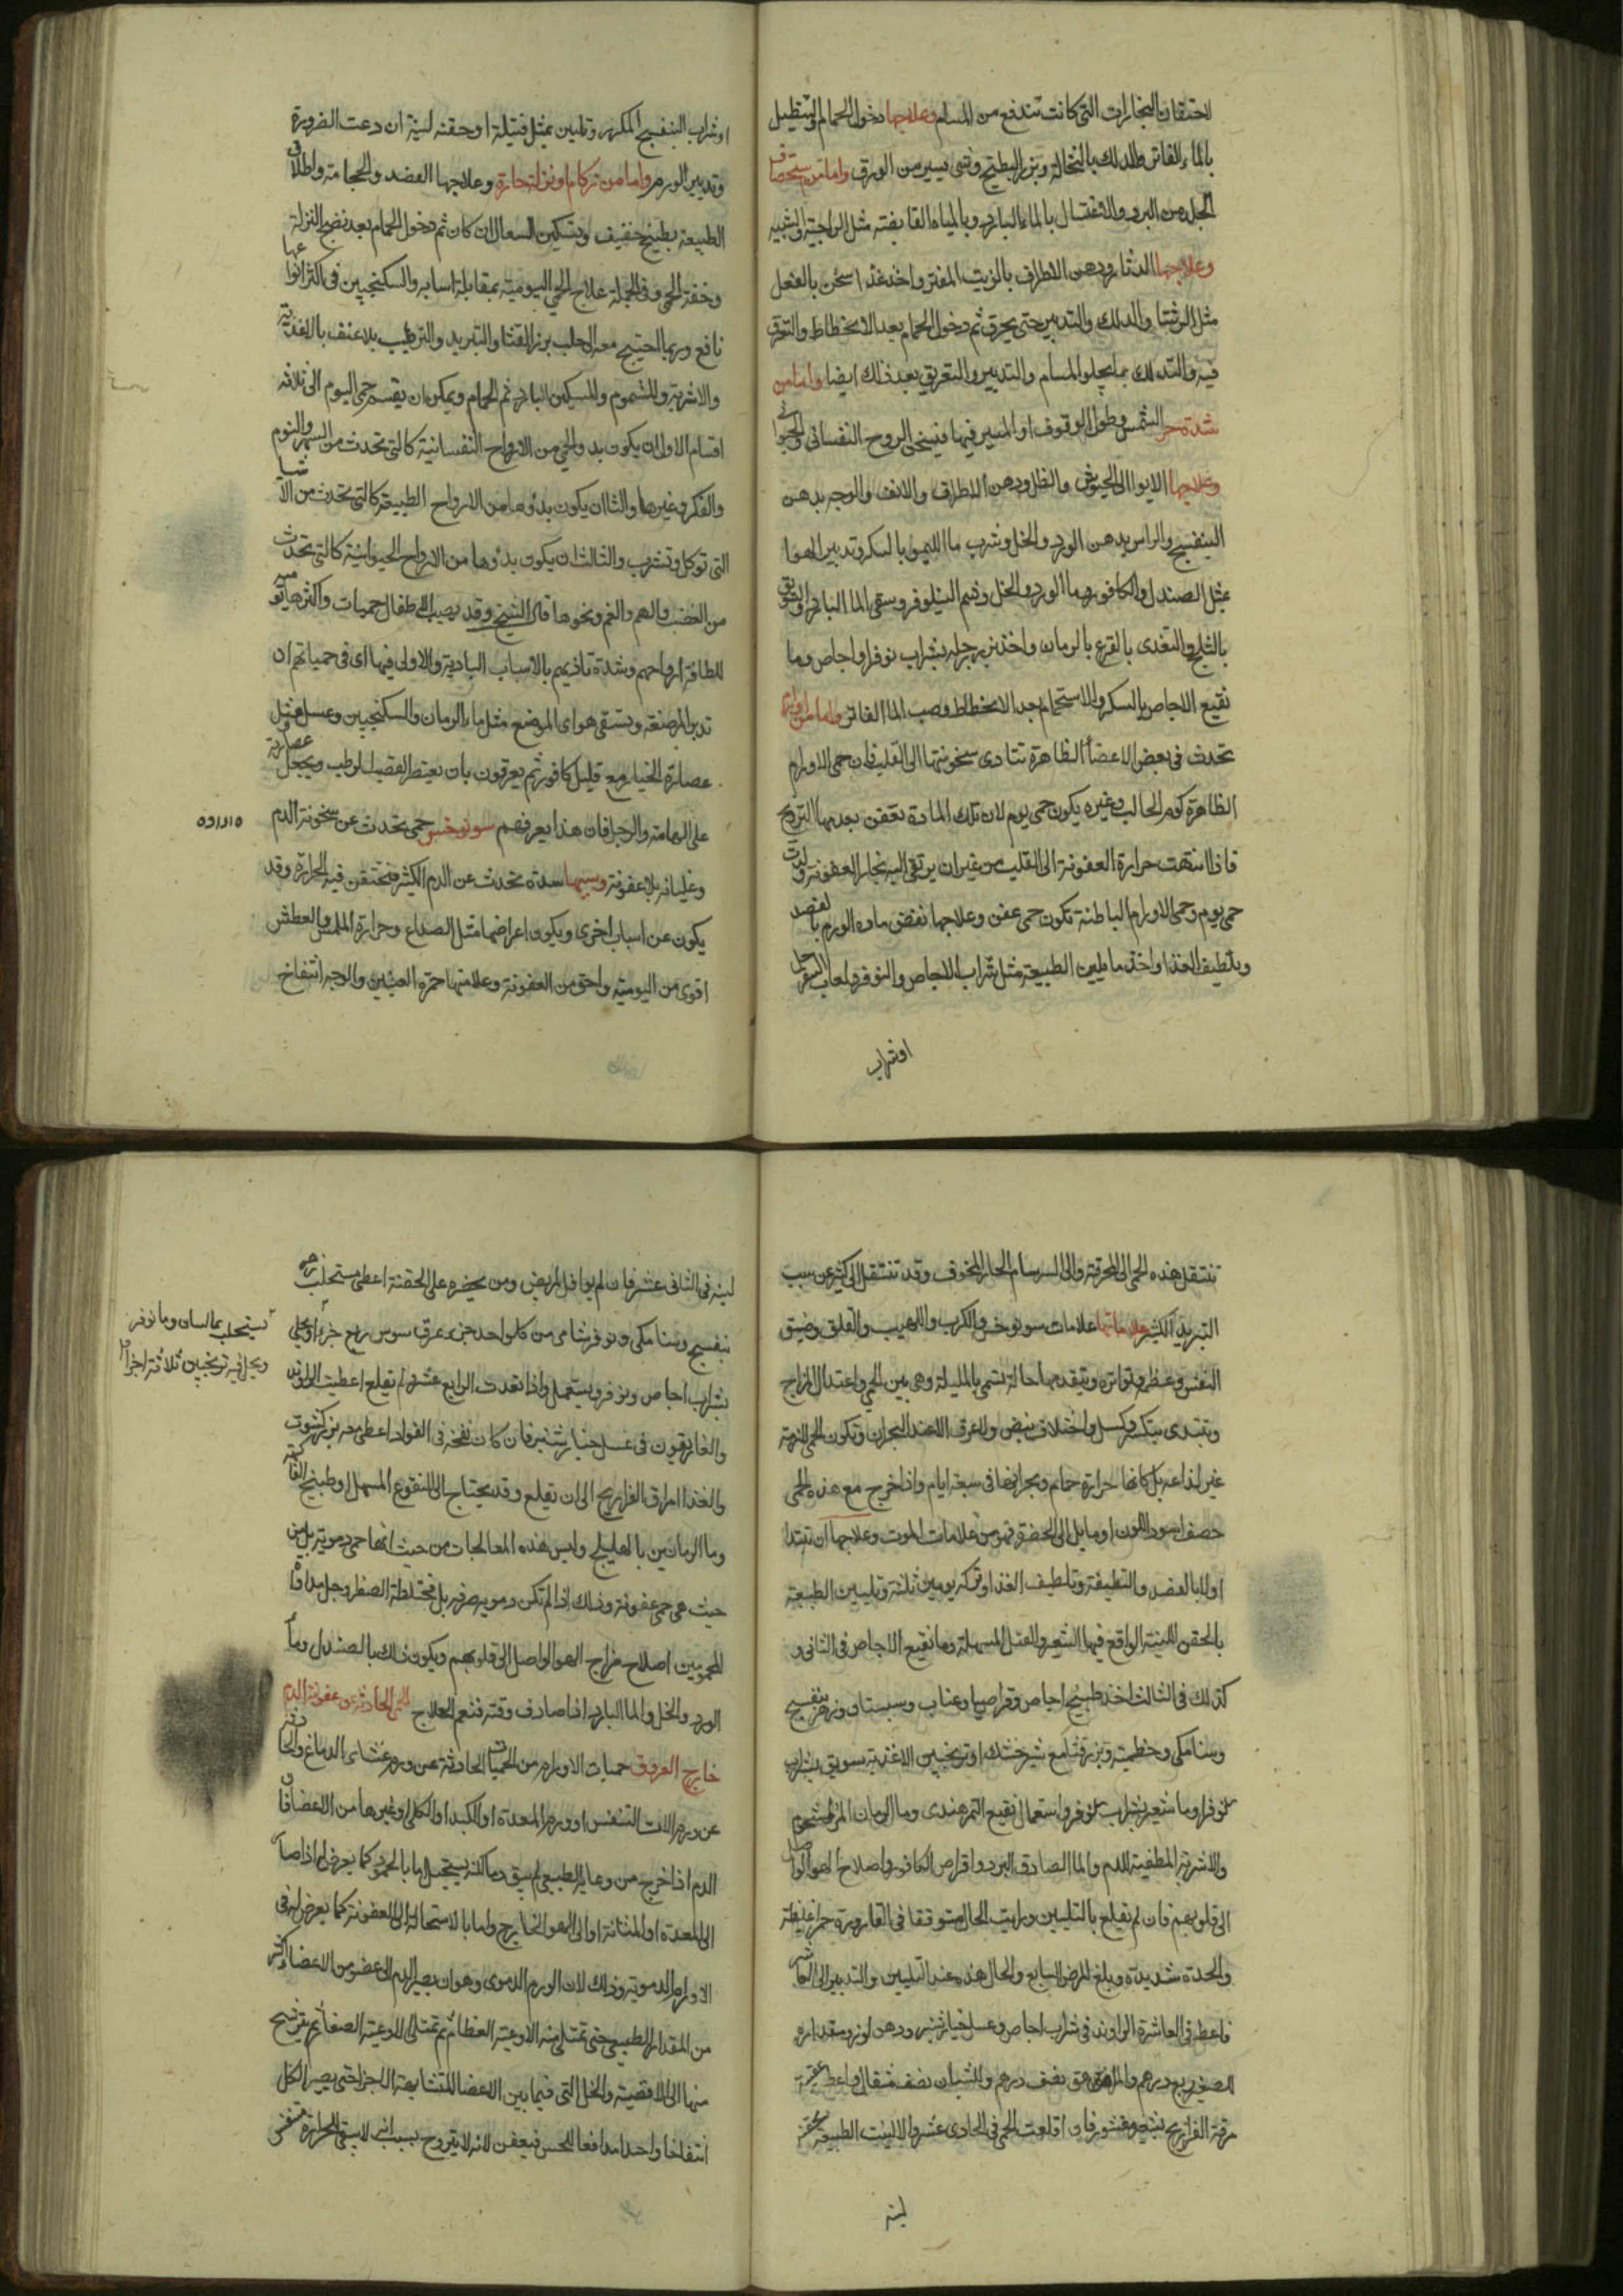 لاحتقان البخارات التي كانت تندفع من المسام وعلاجها دخول الحمام والتنطيل
بالماء الفاتر والدلك بالنخالة وبزر البطيخ وشي يسير من البورق واما من استحصاف
الجلد من البرد والاغتسال بالماء البارد وبالمياه القابضة مثل الزاجية والشبية
وعلاجها الدثار ودهن الاطراف بالزيت المفتر واخذ غذا سخن بالفعل
مثل الرشتا والدلك والتدبير حتى يعرق ثم دخول الحمام بعد الانحطاط والتعرق
فيه والتدلك بما يجلو المسام والتدبير والتعريق بعد ذلك ايضا واما من
شدة حر الشمس وطول الوقوف او المسير فيها فيسخن الروح النفساني والحيواني
وعلاجها الايوا الى الخيوش والظل ودهن الاطراف والانف والوجه بدهن
البنفسج والراس بدهن الورد والخل وشرب ما الليمو بالسكر وتدبير الهوا
بمثل الصندل والكافور وما الورد والخل وشم النيلوفر وسقي الما البارد والسويق
بالثلج والتغدي بالقرع بالرمان واخذ بزر رجله بشراب نوفر او اجاص وما
نقيع الاجاص بالسكر والاستحمام بعد الانحطاط وصب الما الفاتر واما من اورام
تحدث في بعض الاعضا الظاهرة تتادى سخونتها الى القلب فان حمى الاورام
الظاهرة كورم الحالب وغيره يكون حمى يوم لان تلك المادة تعفن بعدمها التروح
فاذا انتهت حرارة العفونة الى القلب من غير ان يرتقي اليه بخار العفونة ولدت
حمى يوم وحمى الاورام الباطنة تكون حمى عفن وعلاجها نفض مادة الورم بالفصد
وبلطيف الغذا واخذ ما يلين الطبيعة مثل شراب الاجاص والنوفر ولعاب السفرجل
او شراب
او شراب البنفسج المكرر وتليين بمثل فتيلة او حقنه لينة ان دعت الضرورة
وتدبير الورم واما من زكام او نزلة حارة وعلاجها الفصد والحجامة واطلاق
الطبيعة بطبيخ خفيف وتسكين السعال ان كان ثم دخول الحمام بعد نضج النزلة
وخفة الحمى وفي الجملة علاج الحمى اليومية بمقابلة اسبابه والسكنجبين في اكثر انواعها
نافع وربما احتيج معه الى حلب بزر القثا والتبريد والترطيب بلا عنف بالاغذية
والاشربة والمشموم والمسكن البارد ثم الحمام ويمكن ان يقسم حمى اليوم الى ثلاثة
اقسام الاول ان يكون بدو الحمى من الارواح النفسانية كالتي تحدث من السهر والنوم
والفكر وغيرها والثا ان يكون بدؤها من الارواح الطبيعة كالتي تحدث من الاشيا
التي توكل وتشرب والثالث ان يكون بدؤها من الارواح الحيوانية كالتي تحدث
من الغضب والهم والغم ونحوها قال الشيخ وقد يصيب الاطفال حميات واكثرها يوميه
للطافة ارواحهم وشدة تاذيهم بالاسباب البادية والاولى فيها اي في حمياتهم ان
تدبر المرضعة وتسقى هو اي الموضع مثل ماء الرمان والسكنجبين وعسل مثل
عصارة الخيار مع قليل كافور ثم يعرقون بان يعتصر القصب الرطب ويجعل عصارته
على الهامة والرجل فان هذا يعرفهم سونوخس حمى تحدث عن سخونة الدم
وغليانه بلا عفونة وسببها سدة تحدث عن الدم الكثير فتحتقن فيه الحرارة وقد
يكون عن اسباب اخرى ويكون اعراضها مثل الصداع وحرارة الملمس والعطش
اقوى من اليومية واخف من العفونة وعلامتها حمرة العينين والوجه انتفاخ
تنتقل هذه الحمى الى المحرقة والى السرسام الحار المخوف وقد تنتقل الى كثير عن سبب
التبريد الكثير علاماتها علامات سونوخس والكرب واللهيب والقلق وضيق
النفس وعظم وتواتره ويتقدمها حالة تسمى بالمليلة وهي بين الحمى واعتدال المزاج
وتبتدي بتكسر وكسل واختلاف نبض ولا عرق الا عند البحران وتكون الحمى لازمة
غير لذاعه بل كانها حرارة حمام وبحرانها في سبعة ايام واذا خرج مع هذه الحمى
حصف اسود اللون او مايل الى الخضرة فهو من علامات الموت وعلاجها ان تبتدا
اولا بالفصد والتطيفة وتلطيف الغذا وتركه يومين ثلثة وتليين الطبيعة
بالحقن اللينة الواقع فيها الشعير والفتل المسهلة وما نقيع الاجاص في الثاني و
كذلك في الثالث اخذ طبيخ اجاص وقراصيا وعناب وسبستان وزهر بنفسج
وسنا مكي وخطمية وبزر قثا مع شيرخشك او ترنجبين الاغذية سويق بشراب
نلوفر او ما شعير بشراب نلوفر واستعمال نقيع التمر هندي وما الرمان المز المشحوم
والاشربة المطفية للدم والما الصادق البرد واقراص الكافور واصلاح الهوا الواصل
الى قلوبهم فان لم تقلع بالتليين ورايت الحال متوقفا في القارورة حمرا غليظة
والحدة شديدة وبلغ المرض السابع والحال هذه عند التليين والتدبير الى العاشر
فاعطه في العاشرة الراوند في شراب اجاص وعسل خيارشنبر ودهن لوز ومقداره
للصغير ربع درهم والمراهق نصف درهم والشبان نصف مثقال واعطه عقيبه
مرقة الفراريج بشعير مقشور فان اقلعت الحمى في الحادي عشر والا لينت الطبيعة بحقنة
لينة
لينة في الثاني عشر فان لم يوافق المريض ومن يحضره على الحقنة اعطي مستحلب زهر
بنفسج وسنا مكي ونوفر شامي من كل واحد جزء عرق سوس ربع جزء او يحلي
بشراب اجاص ونوفر ويستعمل واذا تعدت الرابع عشر ولم تقلع اعطيت الراوند
والغاريقون في عسل خيارشنبر فان كان نفخة في الفواد اعطي معه بزر كشوت
والغذا امراق الفراريج الى ان تقلع وقد يحتاج الى النقوع المسهل او طبيخ الفاكهة
وما الرمانين بالهليلج وليس هذه المعالجات من حيث انها حمى دموية بل من
حيث هي حمى عفونة وذلك اذا لم تكن دمويه صرفه بل مختلطة الصفرا وجل مداواة
المحمومين اصلاح مزاج الهوا الواصل الى قلوبهم ويكون ذلك بالصندل وماء
الورد والخل والما البارد اذا صادف وقته فنعم العلاج الحمى الحادثة عن عفونة الدم
خارج العروق حميات الاورام من الحميات الحادثة عن ورم غشاي الدماغ والحادثة
عن ورم الات التنفس او ورم المعدة او الكبد او الكلى او غيرها من الاعضا فان
الدم اذا خرج من وعايه الطبيعي لم يبق دما لكنه يستحيل اما بالجمود كما يعرض له اذا صار
الى المعدة او المثانة او الى الهوا الخارج واما بالاستحالة الى العفونة كما يعرض له في
الاورام الدموية وذلك لان الورم الدموي وهو ان يصير الدم الى عضو من الاعضا اكثر
من المقدار الطبيعي حتى تمتلي منه الاوعية العظام ثم تمتلي الاوعية الصغار ثم يترشح
منها الى الاقضية والخلل التي فيما بين الاعضا المتشابهة الاجزا حتى يصير الكل
انتفاخا واحدا مدافعا للحس فيعفن لانه لا يتروح بسبب انه لا يبقى للحرارة متنفس
تستحلب بما لسان وما نوفر
ويحل فيه ترنجبين ثلاثة اجزا